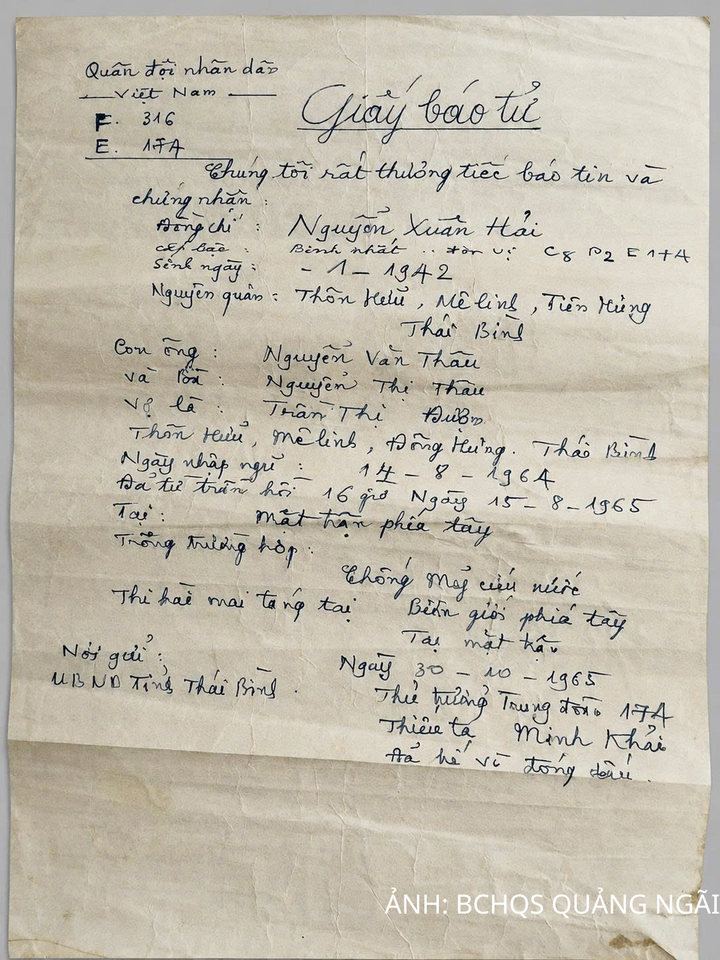 Quân đội nhân dân
Việt Nam
F. 316
E. 17A
Giấy báo tử
Chúng tôi rất thương tiếc báo tin và
chứng nhận:
Đồng chí: Nguyễn Xuân Hải
Cấp bậc: Binh nhất .. đơn vị C8 D2 E17A
Sinh ngày: - 1 - 1942
Nguyên quán: Thôn Hữu, Mê linh, Tiên Hưng
Thái Bình
Con ông: Nguyễn Văn Thâu
và Bà: Nguyễn Thị Thâu
Vợ là: Trần Thị Đượm
Thôn Hữu, Mê linh, Đông Hưng. Thái Bình
Ngày nhập ngũ: 14 - 8 - 1964
Đã tử trận hồi 16 giờ Ngày 15 - 8 - 1965
Tại: Mặt trận phía tây
Trong trường hợp:
Chống Mỹ cứu nước
Thi hài mai táng tại Biên giới phía tây
Tại mặt trận
Nơi gửi: Ngày 30 - 10 - 1965
UBND Tỉnh Thái Bình. Thủ trưởng Trung đoàn 17A
Thiếu tá Minh Khải
Đã ký và đóng dấu.
ẢNH: BCHQS QUẢNG NGÃI